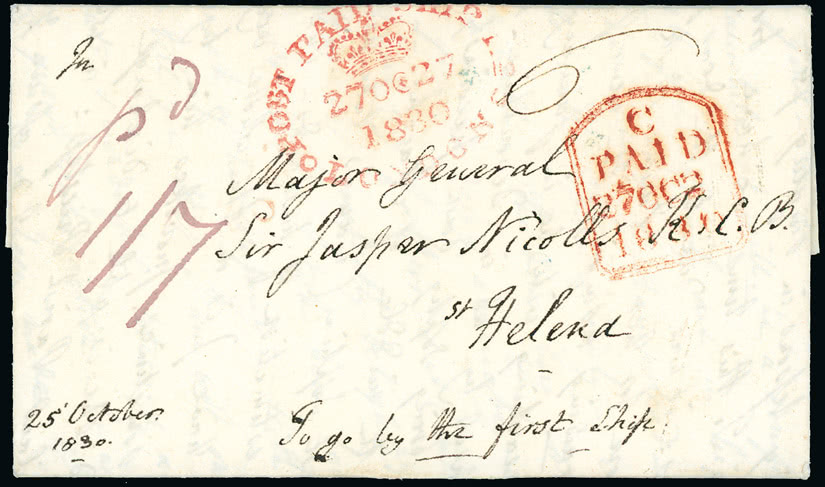 POST PAID SHIP LONDON
27 OC 27
1830
C
PAID
27 OC 2
1830
pd
1/7
Major General
Sir Jasper Nicolls K.C.B.
St Helena
25 October
1830.
To go by the first Ship